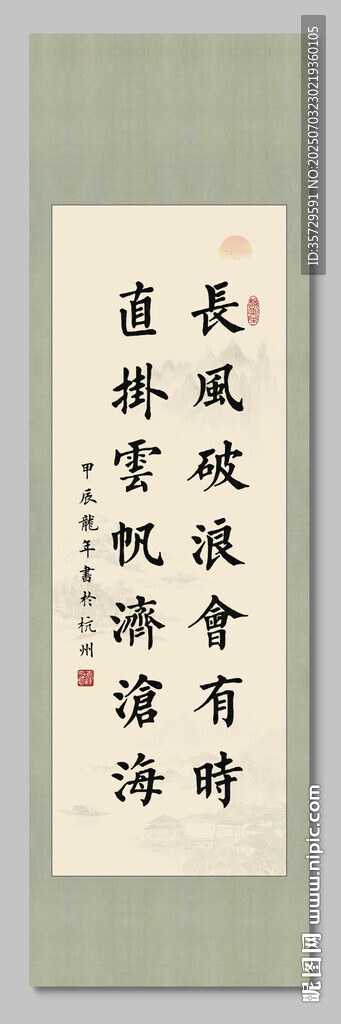 長風破浪會有時
直掛雲帆濟滄海
甲辰龍年書於杭州
ID:35729591 NO:20250703230219360105
昵图网 www.nipic.com